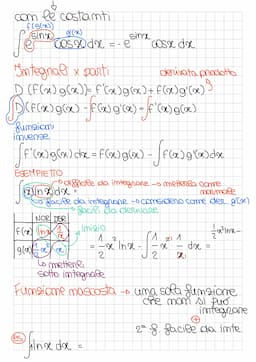 con le costanti
f(g(x)) g'(x)
∫ e^sinx cosx dx = - e^sinx cosx dx
Integrali x parti
derivata prodotto
D (f(x) g(x)) = f'(x) g(x) + f(x) g'(x)
∫D (f(x) g(x)) - ∫f(x) g'(x) = ∫f'(x) g(x)
funzioni
inverse
∫ f'(x) g(x) dx = f(x) g(x) - ∫ f(x) g'(x) dx
ESEMPIETTO
difficile da integrare → metterla come
∫ x lnx dx =
facile da integrare → considero come der. g(x)
facile da derivare
NOR DER
inizio
f(x) lnx 1/x
g(x) 1/2 x² x
= 1/2 x² lnx - ∫ 1/2 x² 1/x dx = 1/2 x² lnx -
→ metterla
sotto integrale
Funzione nascosta → una sola funzione
che non si può
integrare
+
2ª f. facile da inte
es
∫ 1 lnx dx =